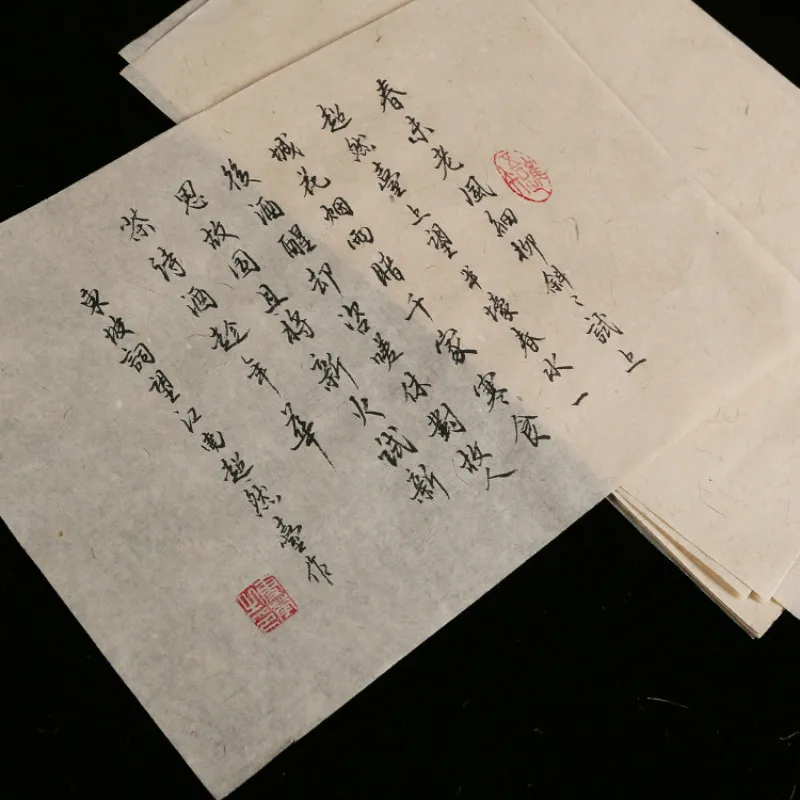 春未老風細柳斜〻試上
超然臺上望半壕春水一
城花烟雨暗千家寒食
後酒醒却咨嗟休對故人
思故国且将新火试新
茶诗酒趁年華
東坡詞望江南超然臺作